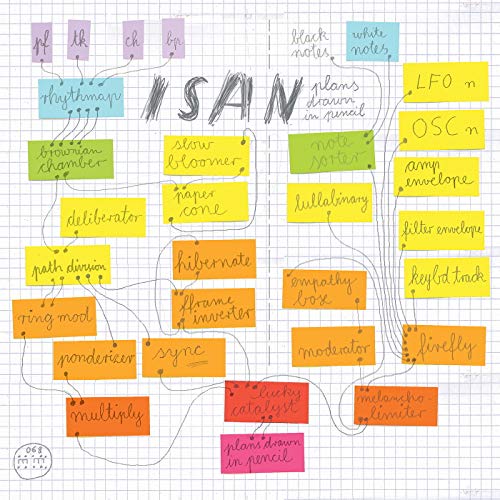 pf
tk
ch
bp
black
notes
white
notes
rhythmap
ISAN
plans
drawn
in pencil
LFO n
OSC n
brownian
chamber
slow
bloomer
note
sorter
amp
envelope
paper
cone
lullabinary
deliberator
filter envelope
path division
hibernate
keybd track
empathy
box
ring mod
fframe
inverter
ponderizer
sync
moderator
firefly
multiply
lucky
catalyst
melancho-
limiter
plans drawn
in pencil
068